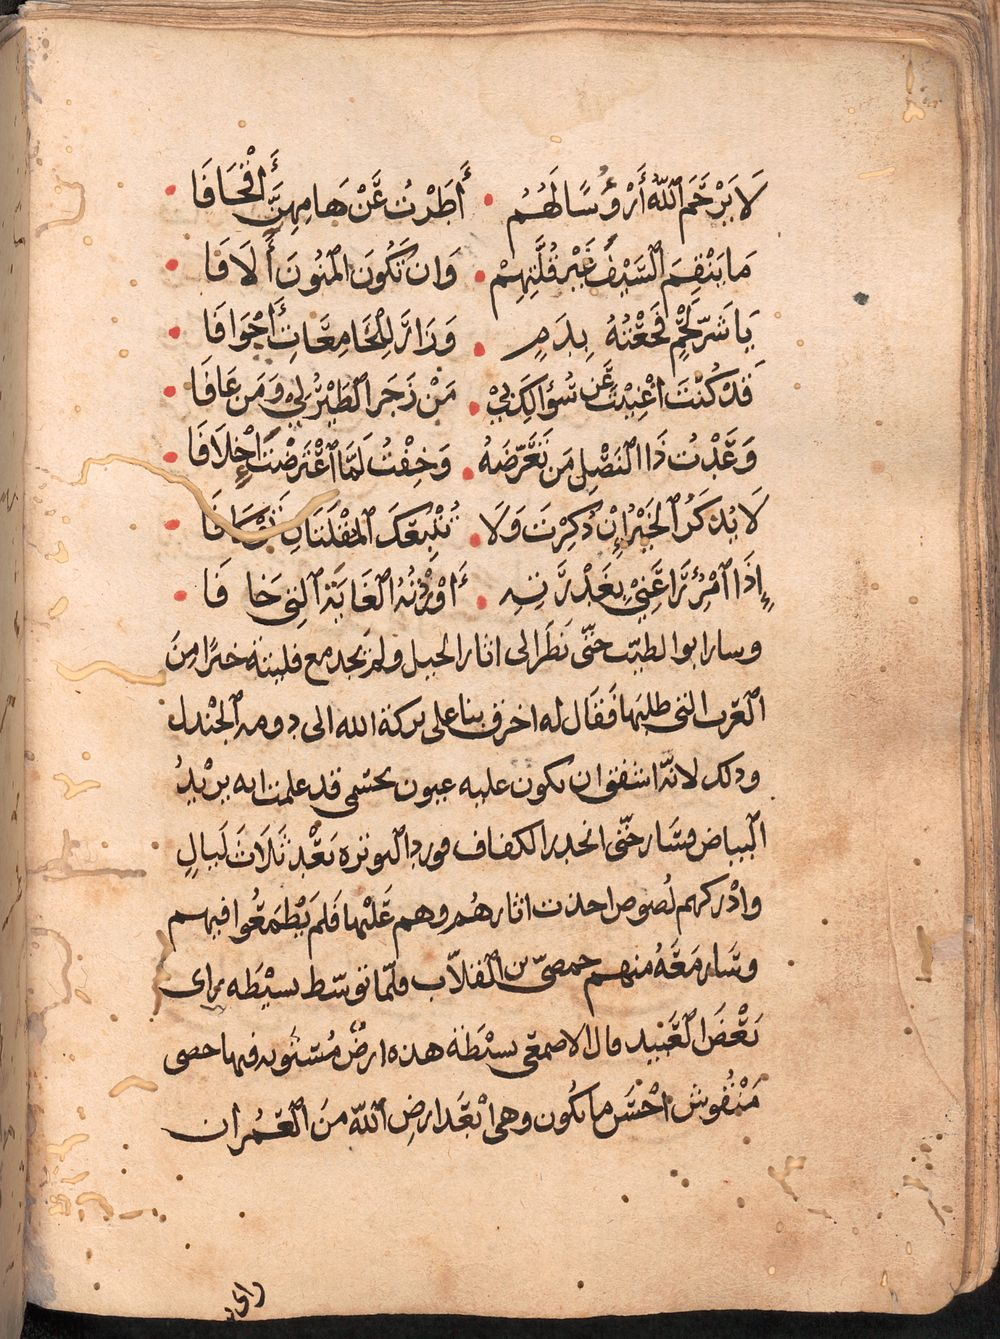 لَا يَرْحَمِ ٱللّٰهُ أَرْؤُسًا لَهُم • أَطَرْتُ عَنْ هَامِهِنَّ أَقْحَافَا •
مَا يَنْقِمُ ٱلسَّيْفُ غَيْرَ قِلَّتِهِمْ • وَان تَكُونَ المَنُونَ أَلَافَا •
يَا شَرَّ لَحْمٍ فَجَعْتُهُ بِدَمٍ • وَزَارَ لِلْخَامِعَاتِ أَجْوَافَا •
قَدْ كُنْتَ اغْنِيْتَ عَن سُؤَالِكَ بِيْ • مَنْ زَجَرَ الطَيْرَ لِيْ وَمَن عَافَا •
وَعَدْتُ ذَا ٱلنَصْلِ مَن تَعَرَّضَهُ • وَخِفْتُ لَمَّا ٱعْتَرَضْتَ إِخْلَافَا •
لَا يُذكَرُ ٱلخَيْرُ إِنْ ذُكِرْتَ وَلَا • تُتْبِعُكَ ٱلمُقْلَتَانِ تَوْكَافَا •
إِذَا ٱمْرُؤٌ رَاعَنِيْ بِغَدْرَتِهِ • أَوْرَدْتُهُ ٱلغَايَةَ ٱلتِي خَا فَا •
وسار ابو الطيّب حَتّى نَظَرَ الى اثار الخيل ولم يَجد مع فليتة خبرًا مِنَ
ٱلعَرب التى طلبها فَقَال له اخرق بنا على بركة الله الى دومة ٱلجَنْدل
وذلك لانّه اشفق ان تكون عليه عيون بحسمى قد علمت انه يريْدُ
ٱلبياض وسَار حَتّى انحدر الكفاف فورد ٱلبويرة بَعْدَ ثَلَاثَ لَيالٍ
وادْركهم لُصُوص اخذت اثارهُم وهم عَلَيْها فَلم يَطْمَعُوا فيهم
وسَار مَعَهُ منهم حمصىّ بن ٱلقلاّب فلمّا توسّط بسيْطَه راى
بَعْضَ ٱلعَبيد قال الاصمعّى بسيْطَة هذه ارضٌ مُسْتَوية فيها حصى
مَنْقُوش احْسَن ما يكُون وهى ابْعَد ارضِ ٱللّه مِن ٱلعُمْران
راى